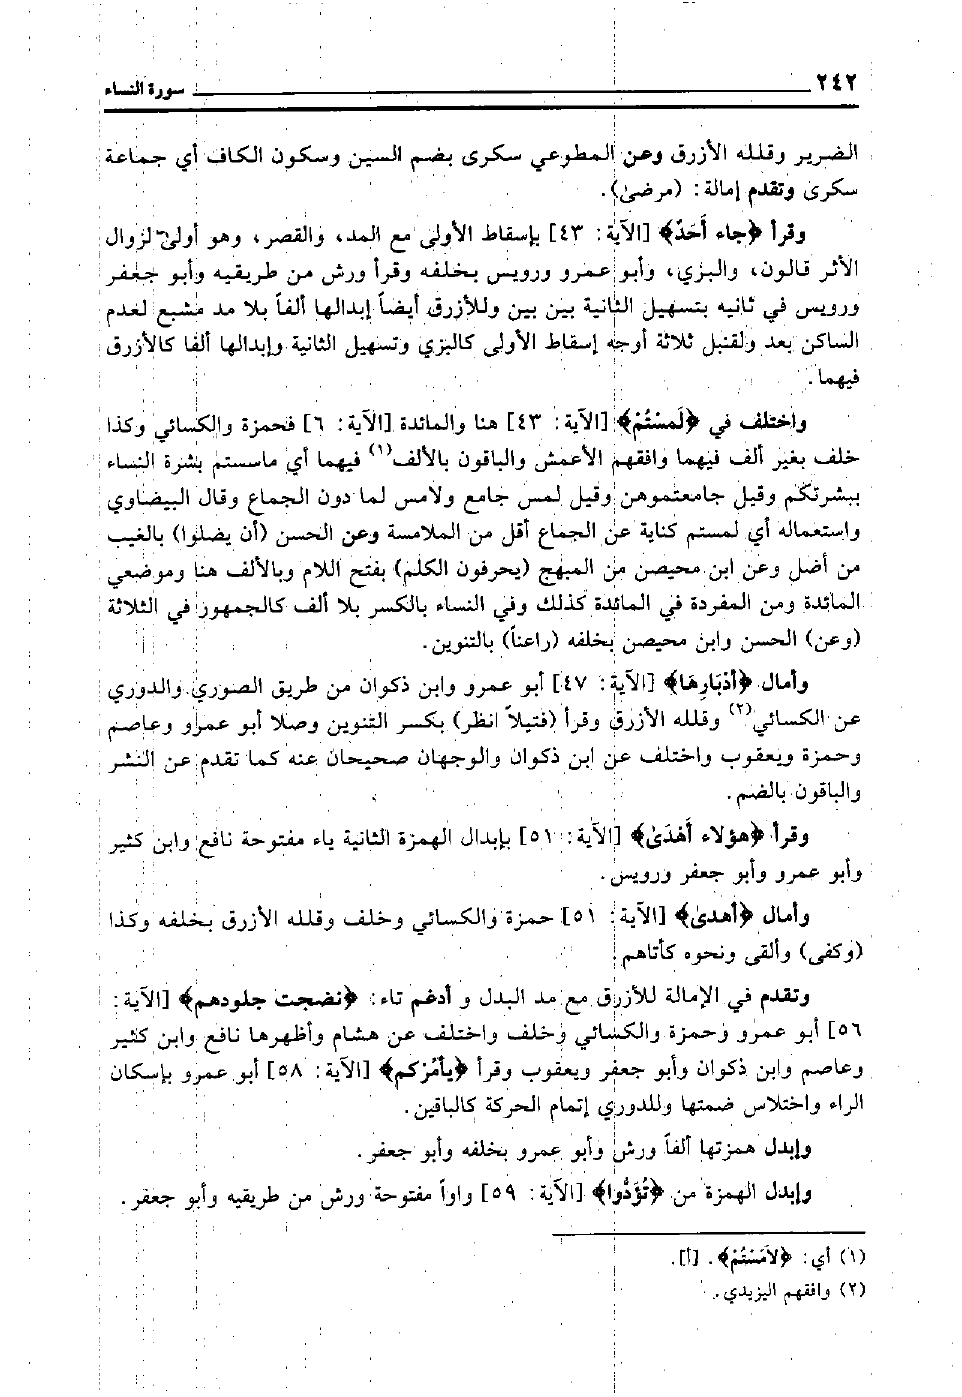 ٢٤٢ سورة النساء
الضرير وقلله الأزرق وعن المطوعي سكرى بضم السين وسكون الكاف أي جماعة
سكرى وتقدم إمالة: (مرضىٰ).
وقرأ ﴿جاء أَحَدٌ﴾ [الآية: ٤٣] بإسقاط الأولى مع المد، والقصر، وهو أولى لزوال
الأثر قالون، والبزي، وأبو عمرو ورويس بخلفه وقرأ ورش من طريقيه وأبو جعفر
ورويس في ثانيه بتسهيل الثانية بين بين وللأزرق أيضاً إبدالها ألفاً بلا مد مشبع لعدم
الساكن بعد ولقنبل ثلاثة أوجه إسقاط الأولى كالبزي وتسهيل الثانية وإبدالها ألفا كالأزرق
فيهما.
واختلف في ﴿لَمسْتُمْ﴾ [الآية: ٤٣] هنا والمائدة [الآية: ٦] فحمزة والكسائي وكذا
خلف بغير ألف فيهما وافقهم الأعمش والباقون بالألف(١) فيهما أي ماسستم بشرة النساء
ببشرتكم وقيل جامعتموهن وقيل لمس جامع ولامس لما دون الجماع وقال البيضاوي
واستعماله أي لمستم كناية عن الجماع أقل من الملامسة وعن الحسن (أن يضلوا) بالغيب
من أضل وعن ابن محيصن من المبهج (يحرفون الكلم) بفتح اللام وبالألف هنا وموضعي
المائدة ومن المفردة في المائدة كذلك وفي النساء بالكسر بلا ألف كالجمهور في الثلاثة
(وعن) الحسن وابن محيصن بخلفه (راعناً) بالتنوين.
وأمال ﴿أدْبَارِهَا﴾ [الآية: ٤٧] أبو عمرو وابن ذكوان من طريق الصوري والدوري
عن الكسائي(٢) وقلله الأزرق وقرأ (فتيلاً انظر) بكسر التنوين وصلا أبو عمرو وعاصم
وحمزة ويعقوب واختلف عن ابن ذكوان والوجهان صحيحان عنه كما تقدم عن النشر
والباقون بالضم.
وقرأ ﴿هؤلاء أَهْدَىٰ﴾ [الآية: ٥١] بإبدال الهمزة الثانية ياء مفتوحة نافع وابن كثير
وأبو عمرو وأبو جعفر ورويس.
وأمال ﴿أهدىٰ﴾ [الآية: ٥١] حمزة والكسائي وخلف وقلله الأزرق بخلفه وكذا
(وكفى) وألقى ونحوه كأتاهم
وتقدم في الإمالة للأزرق مع مد البدل و أدغم تاء: ﴿نضجت جلودهم﴾ [الآية:
٥٦] أبو عمرو وحمزة والكسائي وخلف واختلف عن هشام وأظهرها نافع وابن كثير
وعاصم وابن ذكوان وأبو جعفر ويعقوب وقرأ ﴿يأمُرْكم﴾ [الآية: ٥٨] أبو عمرو بإسكان
الراء واختلاس ضمتها وللدوري إتمام الحركة كالباقين.
وإبدل همزتها ألفاً ورش وأبو عمرو بخلفه وأبو جعفر.
وإبدل الهمزة من ﴿تُؤَدُّوا﴾ [الآية: ٥٩] واواً مفتوحة ورش من طريقيه وأبو جعفر.
(١) أي: ﴿لاَمَسْتُمْ﴾. [أ].
(٢) وافقهم اليزيدي.